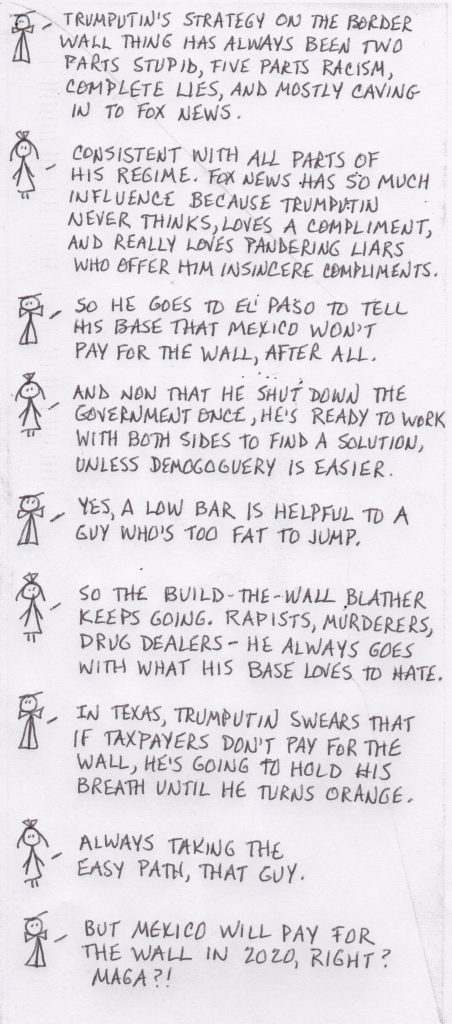 TRUMPUTIN'S STRATEGY ON THE BORDER
WALL THING HAS ALWAYS BEEN TWO
PARTS STUPID, FIVE PARTS RACISM,
COMPLETE LIES, AND MOSTLY CAVING
IN TO FOX NEWS.
CONSISTENT WITH ALL PARTS OF
HIS REGIME. FOX NEWS HAS SO MUCH
INFLUENCE BECAUSE TRUMPUTIN
NEVER THINKS, LOVES A COMPLIMENT,
AND REALLY LOVES PANDERING LIARS
WHO OFFER HIM INSINCERE COMPLIMENTS.
SO HE GOES TO EL PASO TO TELL
HIS BASE THAT MEXICO WON'T
PAY FOR THE WALL, AFTER ALL.
AND NOW THAT HE SHUT DOWN THE
GOVERNMENT ONCE, HE'S READY TO WORK
WITH BOTH SIDES TO FIND A SOLUTION,
UNLESS DEMOGOGUERY IS EASIER.
YES, A LOW BAR IS HELPFUL TO A
GUY WHO'S TOO FAT TO JUMP.
SO THE BUILD-THE-WALL BLATHER
KEEPS GOING. RAPISTS, MURDERERS,
DRUG DEALERS - HE ALWAYS GOES
WITH WHAT HIS BASE LOVES TO HATE.
IN TEXAS, TRUMPUTIN SWEARS THAT
IF TAXPAYERS DON'T PAY FOR THE
WALL, HE'S GOING TO HOLD HIS
BREATH UNTIL HE TURNS ORANGE.
ALWAYS TAKING THE
EASY PATH, THAT GUY.
BUT MEXICO WILL PAY FOR
THE WALL IN 2020, RIGHT?
MAGA?!